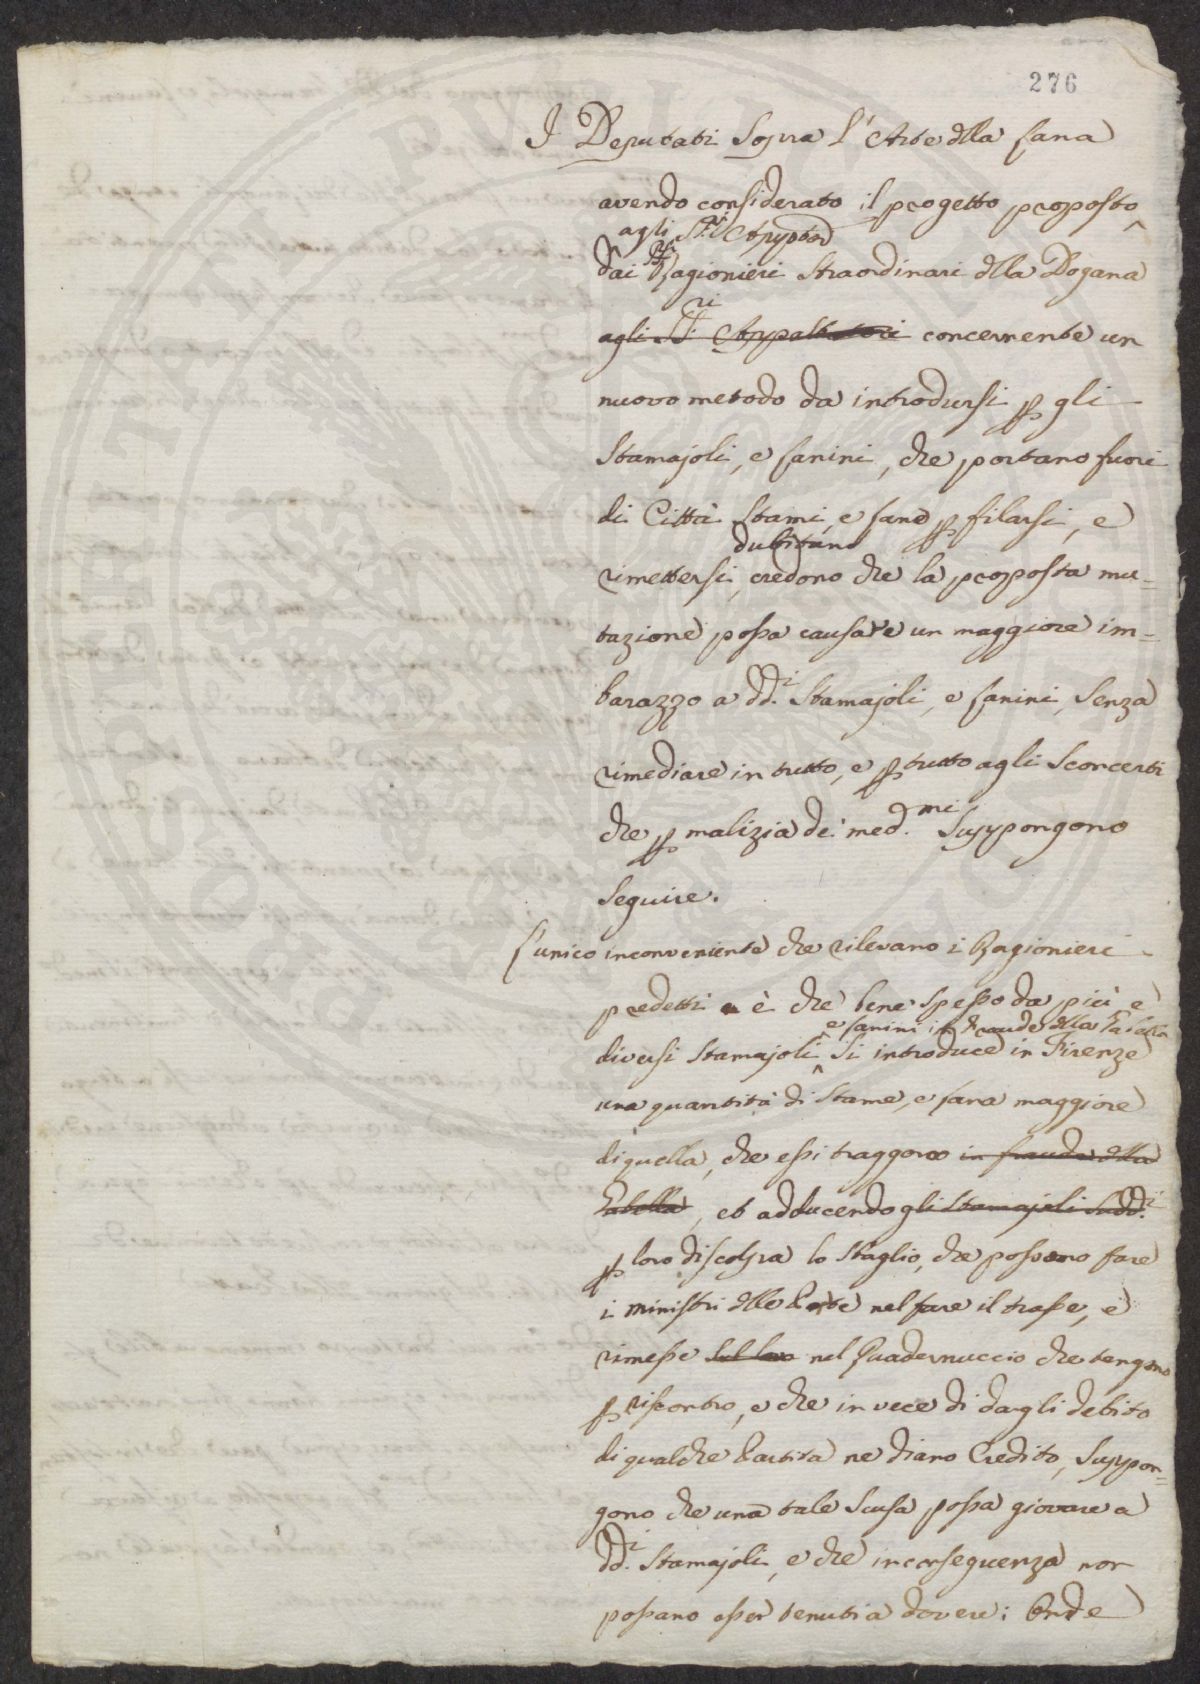 276
I Deputati Sopra l'Arte dlla Lana
avendo considerato il progetto proposto
agli SS.ri Appttori
dai SS.ri Ragionieri Straordinari dlla Dogana
agli SS.ri Appaltatori concernente un
nuovo metodo da introdursi p gli
Stamajoli, e Lanini, che portano fuori
di Città Stami, e Lane p filarsi, e
dubitano
rimettersi, credono che la proposta mu=
tazione possa causare un maggiore im=
barazzo a dd.i Stamajoli, e Lanini, senza
rimediare in tutto, e p tutto agli Sconcerti
che p malizia de' med.mi Suppongono
Seguire.
L'unico inconveniente che rilevano i Ragionieri
predetti è che bene spesso da più e
e Lanini in fraude dlla Gabella
diversi Stamajoli si introduce in Firenze
una quantità di Stame, e Lana maggiore
di quella, che essi traggono in fraude dlla
Gabella, et adducendo gli Stamajoli Sudd.i
p loro discolpa lo Sbaglio, che possono fare
i ministri dlle Porte nel fare il trasse, e
rimesse sul loro nel Quadernuccio che tengono
p riscontro, e che in vece di dargli debito
di qualche Partita ne diano Credito, Suppon=
gono che una tale Scusa possa giovare a
dd.i Stamajoli, e che in conseguenza non
possano esser tenuti a dovere; Onde